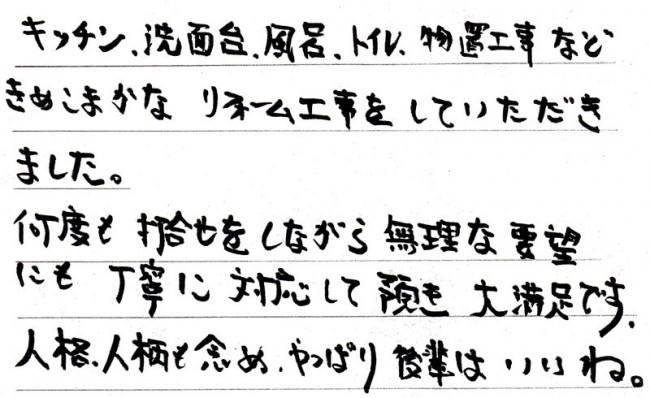 キッチン、洗面台、風呂、トイレ、物置工事など
きめこまかな リホーム工事をしていただき
ました。
何度も 打合せをしながら 無理な要望
にも 丁寧に 対応して 頂き 大満足です。
人格、人柄も含め、やっぱり 後輩は いいね。